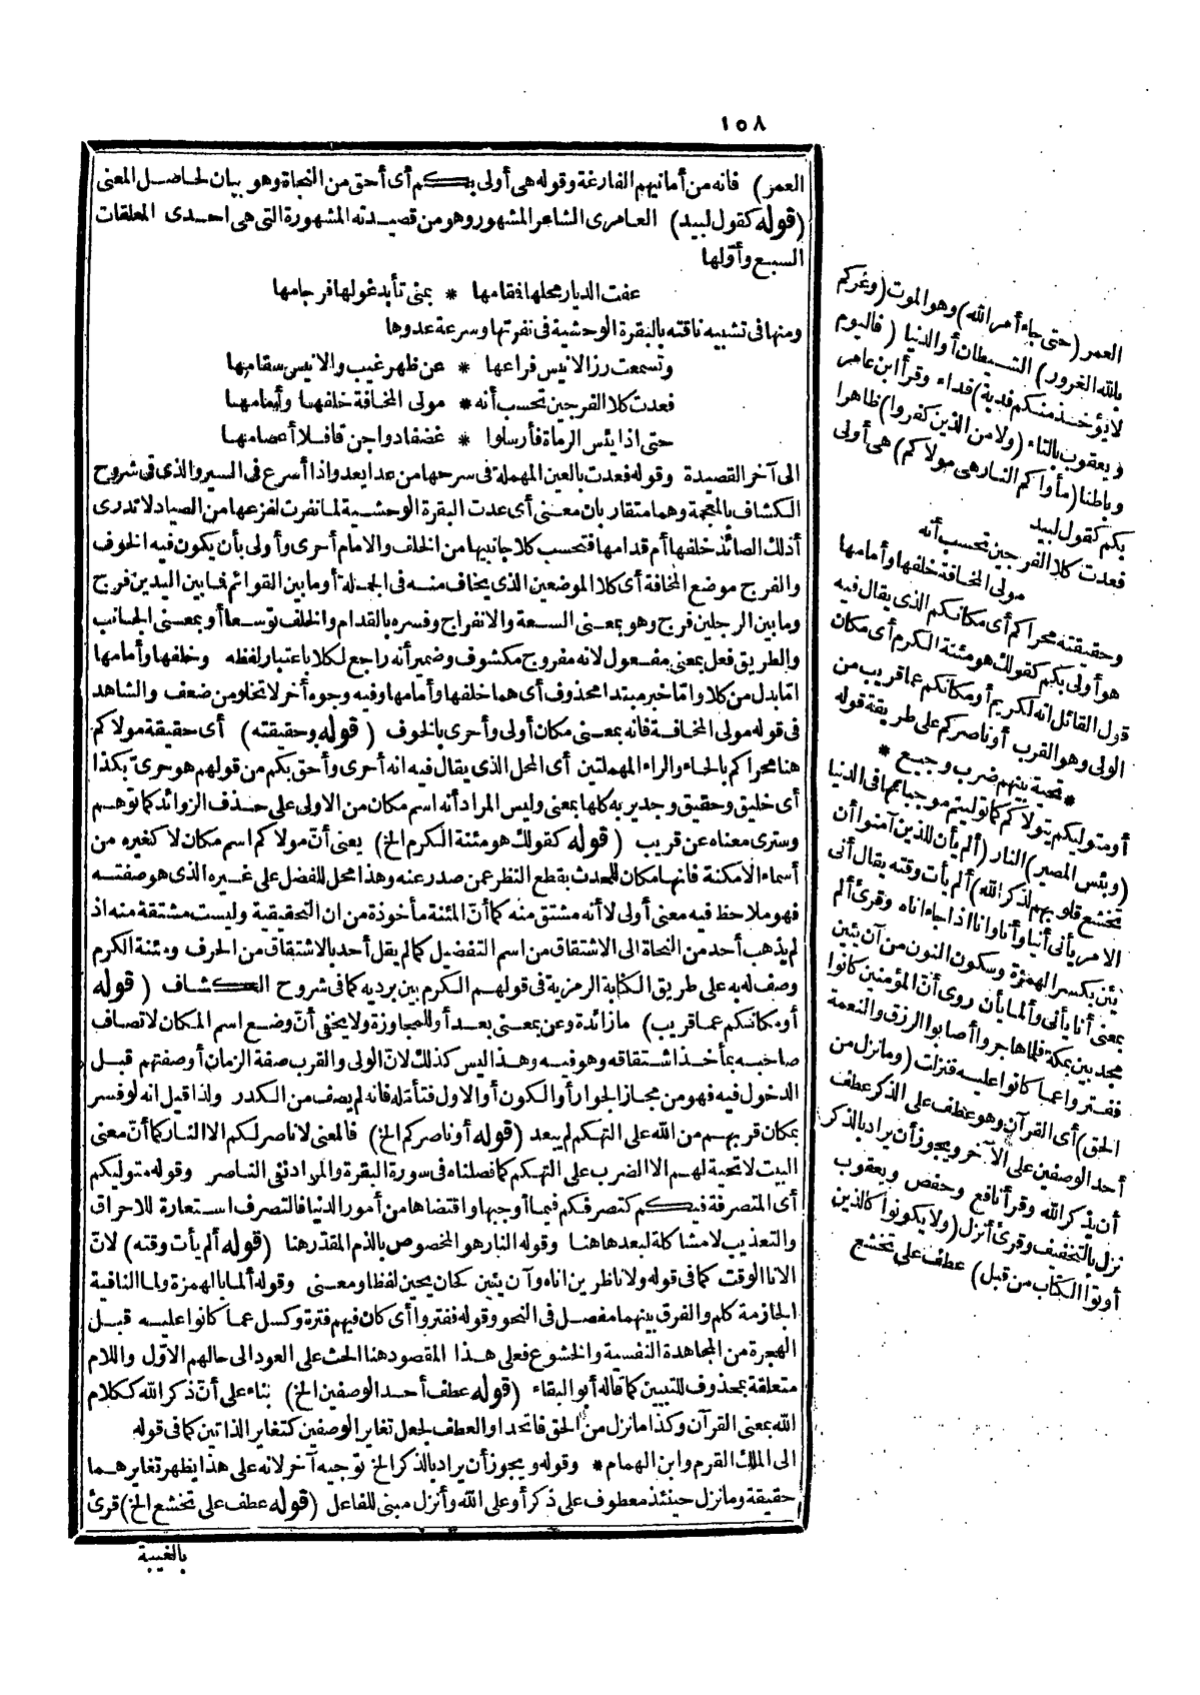 ١٥٨
العمر) فانه من أمانيهم الفارغة وقوله هى أولى بكم أى أحق من النجاة وهو بيان لحاصل المعنى
(قوله كقول لبيد) العامرى الشاعر المشهور وهو من قصيدته المشهورة التى هى احدى المعلقات
السبع وأوّلها
عفت الديار محلها فقامها * بمنى تأبد غولها فرجامها
ومنها فى تشبيه ناقته بالبقرة الوحشية فى نفرتها وسرعة عدوها
وتسمعت رز الانيس فراعها * عن ظهر غيب والانيس سقامها
فعدت كلا الفرجين تحسب أنه * مولى المخافة خلفها وأمامها
حتى اذا يئس الرماة فأرسلوا * غضفا دواجن قافلا أعصامها
الى آخر القصيدة وقوله فعدت بالعين المهملة فى سرحها من عدا يعدو اذا أسرع فى السير والذى فى شروح
الكشاف بالمعجمة وهما متقاربان معنى أى عدت البقرة الوحشية لما نفرت لفزعها من الصياد لا تدرى
أذلك الصائد خلفها أم قدامها فتحسب كلا جانبيها من الخلف والامام أحرى وأولى بأن يكون فيه الخوف
والفرج موضع المخافة أى كلا الموضعين الذى يخاف منه فى الجملة أو ما بين القوائم فما بين اليدين فرج
وما بين الرجلين فرج وهو بمعنى السعة والانفراج وفسره بالقدام والخلف توسعا أو بمعنى الجانب
والطريق فعل بمعنى مفعول لانه مفروج مكشوف وضمير أنه راجع لكلا باعتبار لفظه وخلفها وأمامها
امّا بدل من كلا وامّا خبر مبتدا محذوف أى هما خلفها وأمامها وفيه وجوه أخر لا تخلو من ضعف والشاهد
فى قوله مولى المخافة فانه بمعنى مكان أولى وأحرى بالخوف (قوله وحقيقته) أى حقيقة مولاكم
هنا محراكم بالحاء والراء المهملتين أى المحل الذى يقال فيه انه أحرى وأحق بكم من قولهم هو حرىّ بكذا
أى خليق وحقيق وجدير به كلها بمعنى وليس المراد أنه اسم مكان من الاولى على حذف الزوائد كما توهم
وسترى معناه عن قريب (قوله كقولك هو مئنة الكرم الخ) يعنى أنّ مولاكم اسم مكان لا كغيره من
أسماء الامكنة فانها مكان للحدث بقطع النظر عمن صدر عنه وهذا محل للفضل على غيره الذى هو صفته
فهو ملاحظ فيه معنى أولى لا أنه مشتق منه كما أنّ المئنة مأخوذة من ان التحقيقية وليست مشتقة منه اذ
لم يذهب أحد من النحاة الى الاشتقاق من اسم التفضيل كما لم يقل أحد بالاشتقاق من الحرف ومئنة الكرم
وصف له به على طريق الكناية الرمزية فى قولهم الكرم بين برديه كما فى شروح الكشاف (قوله
أو مكانكم عما قريب) ما زائدة وعن بمعنى بعد أو للمجاوزة ولا يخفى أنّ وضع اسم المكان لاتصاف
صاحبه بمأخذ اشتقاقه وهو فيه وهذا ليس كذلك لانّ الولى والقرب صفة الزمان أو صفتهم قبل
الدخول فيه فهو من مجاز الجوار أو الكون أو الاول فتأمّله فانه لم يصف من الكدر ولذا قيل انه لو فسر
بمكان قربهم من الله على التهكم لم يبعد (قوله أو ناصركم الخ) فالمعنى لا ناصر لكم الا النار كما أنّ معنى
البيت لا تحية لهم الا الضرب على التهكم كما فصلناه فى سورة البقرة والمراد نفى الناصر وقوله متوليكم
أى المتصرفة فيكم كتصرفكم فيما أوجبها واقتضاها من أمور الدنيا فالتصرف استعارة للاحراق
والتعذيب لا مشاكلة لبعدها هنا وقوله النار هو المخصوص بالذم المقدّر هنا (قوله ألم يأت وقته) لانّ
الانا الوقت كما فى قوله ولا ناظرين اناه وآن يئين كحان يحين لفظا ومعنى وقوله ألما بالهمزة ولما النافية
الجازمة كلم والفرق بينهما مفصل فى النحو وقوله ففتروا أى كان فيهم فترة وكسل عما كانوا عليه قبل
الهجرة من المجاهدة النفسية والخشوع فعلى هذا المقصود هنا الحث على العود الى حالهم الاوّل واللام
متعلقة بمحذوف للتبيين كما قاله أبو البقاء (قوله عطف أحد الوصفين الخ) بناء على أنّ ذكر الله ككلام
الله بمعنى القرآن وكذا ما نزل من الحق فاتحدا والعطف لجعل تغاير الوصفين كتغاير الذاتين كما فى قوله
الى الملك القرم وابن الهمام * وقوله ويجوز أن يراد بالذكر الخ توجيه آخر لانه على هذا يظهر تغايرهما
حقيقة وما نزل حينئذ معطوف على ذكر أو على الله وأنزل مبنى للفاعل (قوله عطف على تخشع الخ) قرئ
بالغيبة
العمر (حتى جاء أمر الله) وهو الموت (وغركم
بالله الغرور) الشيطان أو الدنيا (فاليوم
لا يؤخذ منكم فدية) فداء وقرأ ابن عامر
ويعقوب بالتاء (ولا من الذين كفروا) ظاهرا
وباطنا (مأواكم النار هى مولاكم) هى أولى
بكم كقول لبيد
فعدت كلا الفرجين تحسب أنه
مولى المخافة خلفها وأمامها
وحقيقته محراكم أى مكانكم الذى يقال فيه
هو أولى بكم كقولك هو مئنة الكرم أى مكان
قول القائل انه لكريم أو مكانكم عما قريب من
الولى وهو القرب أو ناصركم على طريقة قوله
* تحية بينهم ضرب وجيع *
أو متوليكم يتولاكم كما توليتم موجباتها فى الدنيا
(وبئس المصير) النار (ألم يأن للذين آمنوا أن
تخشع قلوبهم لذكر الله) ألم يأت وقته يقال أنى
الامر يأنى أنيا وأنا وانا اذا جاء اناه وقرئ ألم
يئن بكسر الهمزة وسكون النون من آن يئين
بمعنى أنا يأنى وألما يأن روى أنّ المؤمنين كانوا
مجدبين بمكة فلما هاجروا أصابوا الرزق والنعمة
ففتروا عما كانوا عليه فنزلت (وما نزل من
الحق) أى القرآن وهو عطف على الذكر عطف
أحد الوصفين على الآخر ويجوز أن يراد بالذكر
أن يذكر الله وقرأ نافع وحفص ويعقوب
نزل بالتخفيف وقرئ أنزل (ولا يكونوا كالذين
أوتوا الكتاب من قبل) عطف على تخشع